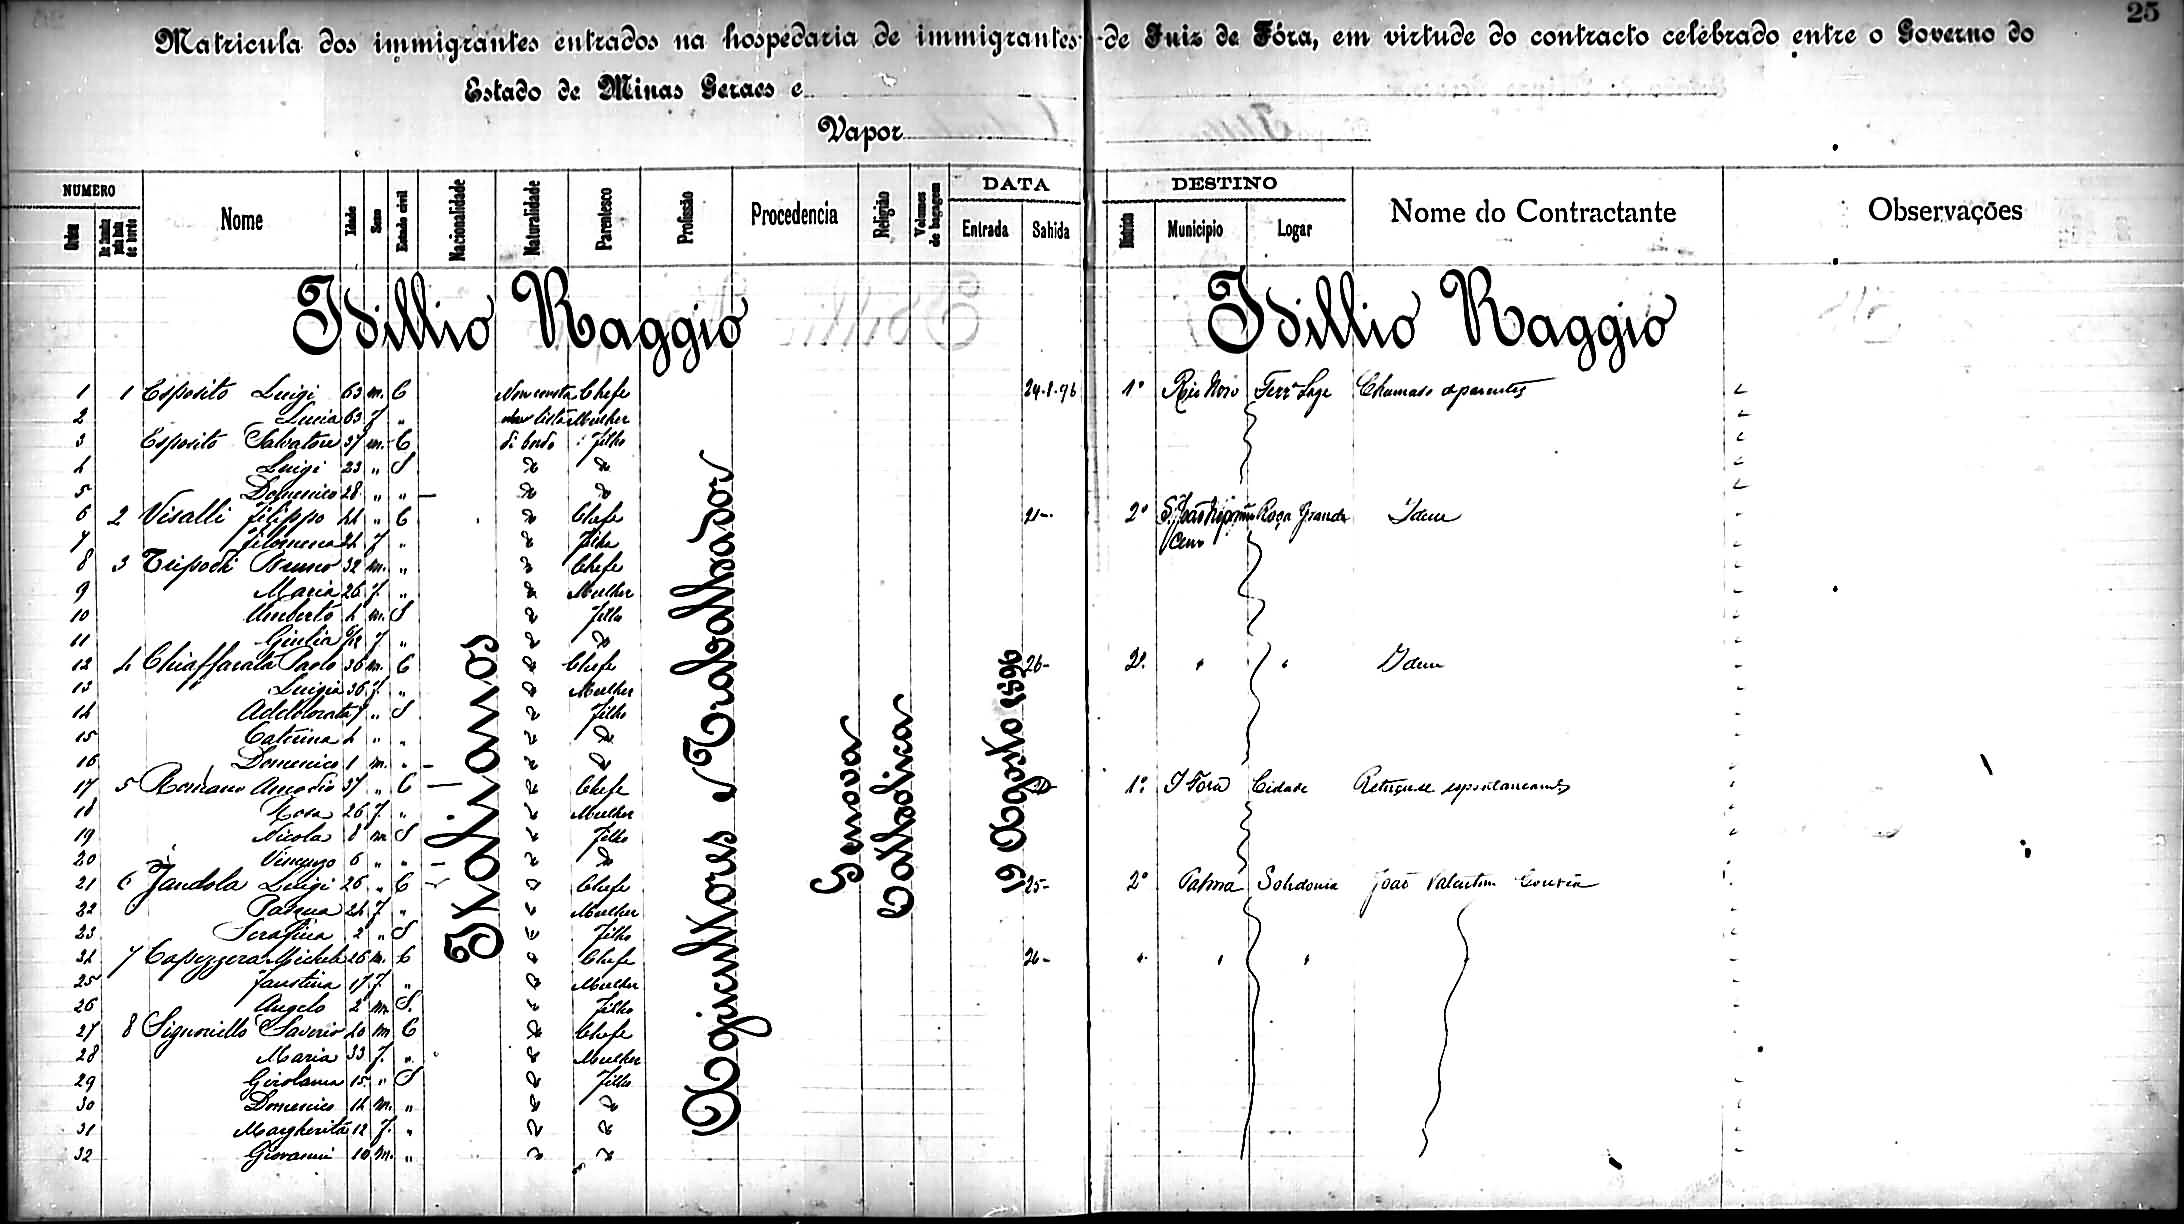 25
Matricula dos immigrantes entrados na hospedaria de immigrantes de Juiz de Fóra, em virtude do contracto celebrado entre o Governo do
Estado de Minas Geraes e
Vapor
NUMERO Nome Idade Sexo Estado civil Nacionalidade Naturalidade Parentesco Profissão Procedencia Religião Volumes de bagagem DATA DESTINO Nome do Contractante Observações
Ordem Entrada Sahida Districto Municipio Logar
Idillio Raggio Idillio Raggio
1 1 Esposito Luigi 63 m. C Non consta Chefe 24-8-96 1º Rio Novo Chamado
2 Lucia 63 f " lista Mulher
3 Esposito Salvatore 37 m. C di bordo Filho
4 Luigi 23 " S do do
5 Domenico 28 " " do do
6 2 Visalli Filippo 44 " C do Chefe 21- 2º Roça Grande Idem
7 Filomena 24 f " do Filha
8 3 Tripodi Bruno 32 m. " do Chefe
9 Maria 26 f. " do Mulher
10 Umberto 4 m. S do Filho
11 Giulia f " do do
12 4 Chiaffarata Paolo 36 m. C do Chefe 26- 2º " " Idem
13 Luigia 36 f. " do Mulher
14 " S do Filho
15 Caterina 4 " " do do
16 Domenico 1 m. " do do
17 5 Romano Amodio 37 " C do Chefe 1º J Fora Cidade
18 Rosa 26 f. " do Mulher
19 Nicola 8 m S do Filho
20 Vincenzo 6 " " do do
21 6 Jandola Luigi 26 " C do Chefe 25- 2º Palma João Valentim
22 24 f. " do Mulher
23 Serafina 2 " S do Filho
24 7 Capezzera Michele 26 m. C do Chefe 26- " " "
25 Faustina 17 f. " do Mulher
26 Angelo 2 m S. do Filho
27 8 Signoriello Saverio 40 m C do Chefe
28 Maria 33 f. " do Mulher
29 Girolama 15 " S do Filho
30 Domenico 14 m. " do do
31 Margherita 12 f. " do do
32 Giovanni 10 m. " do do
Italianos
Agricultores e Trabalhador
Genova
Catholica
19 Agosto 1896